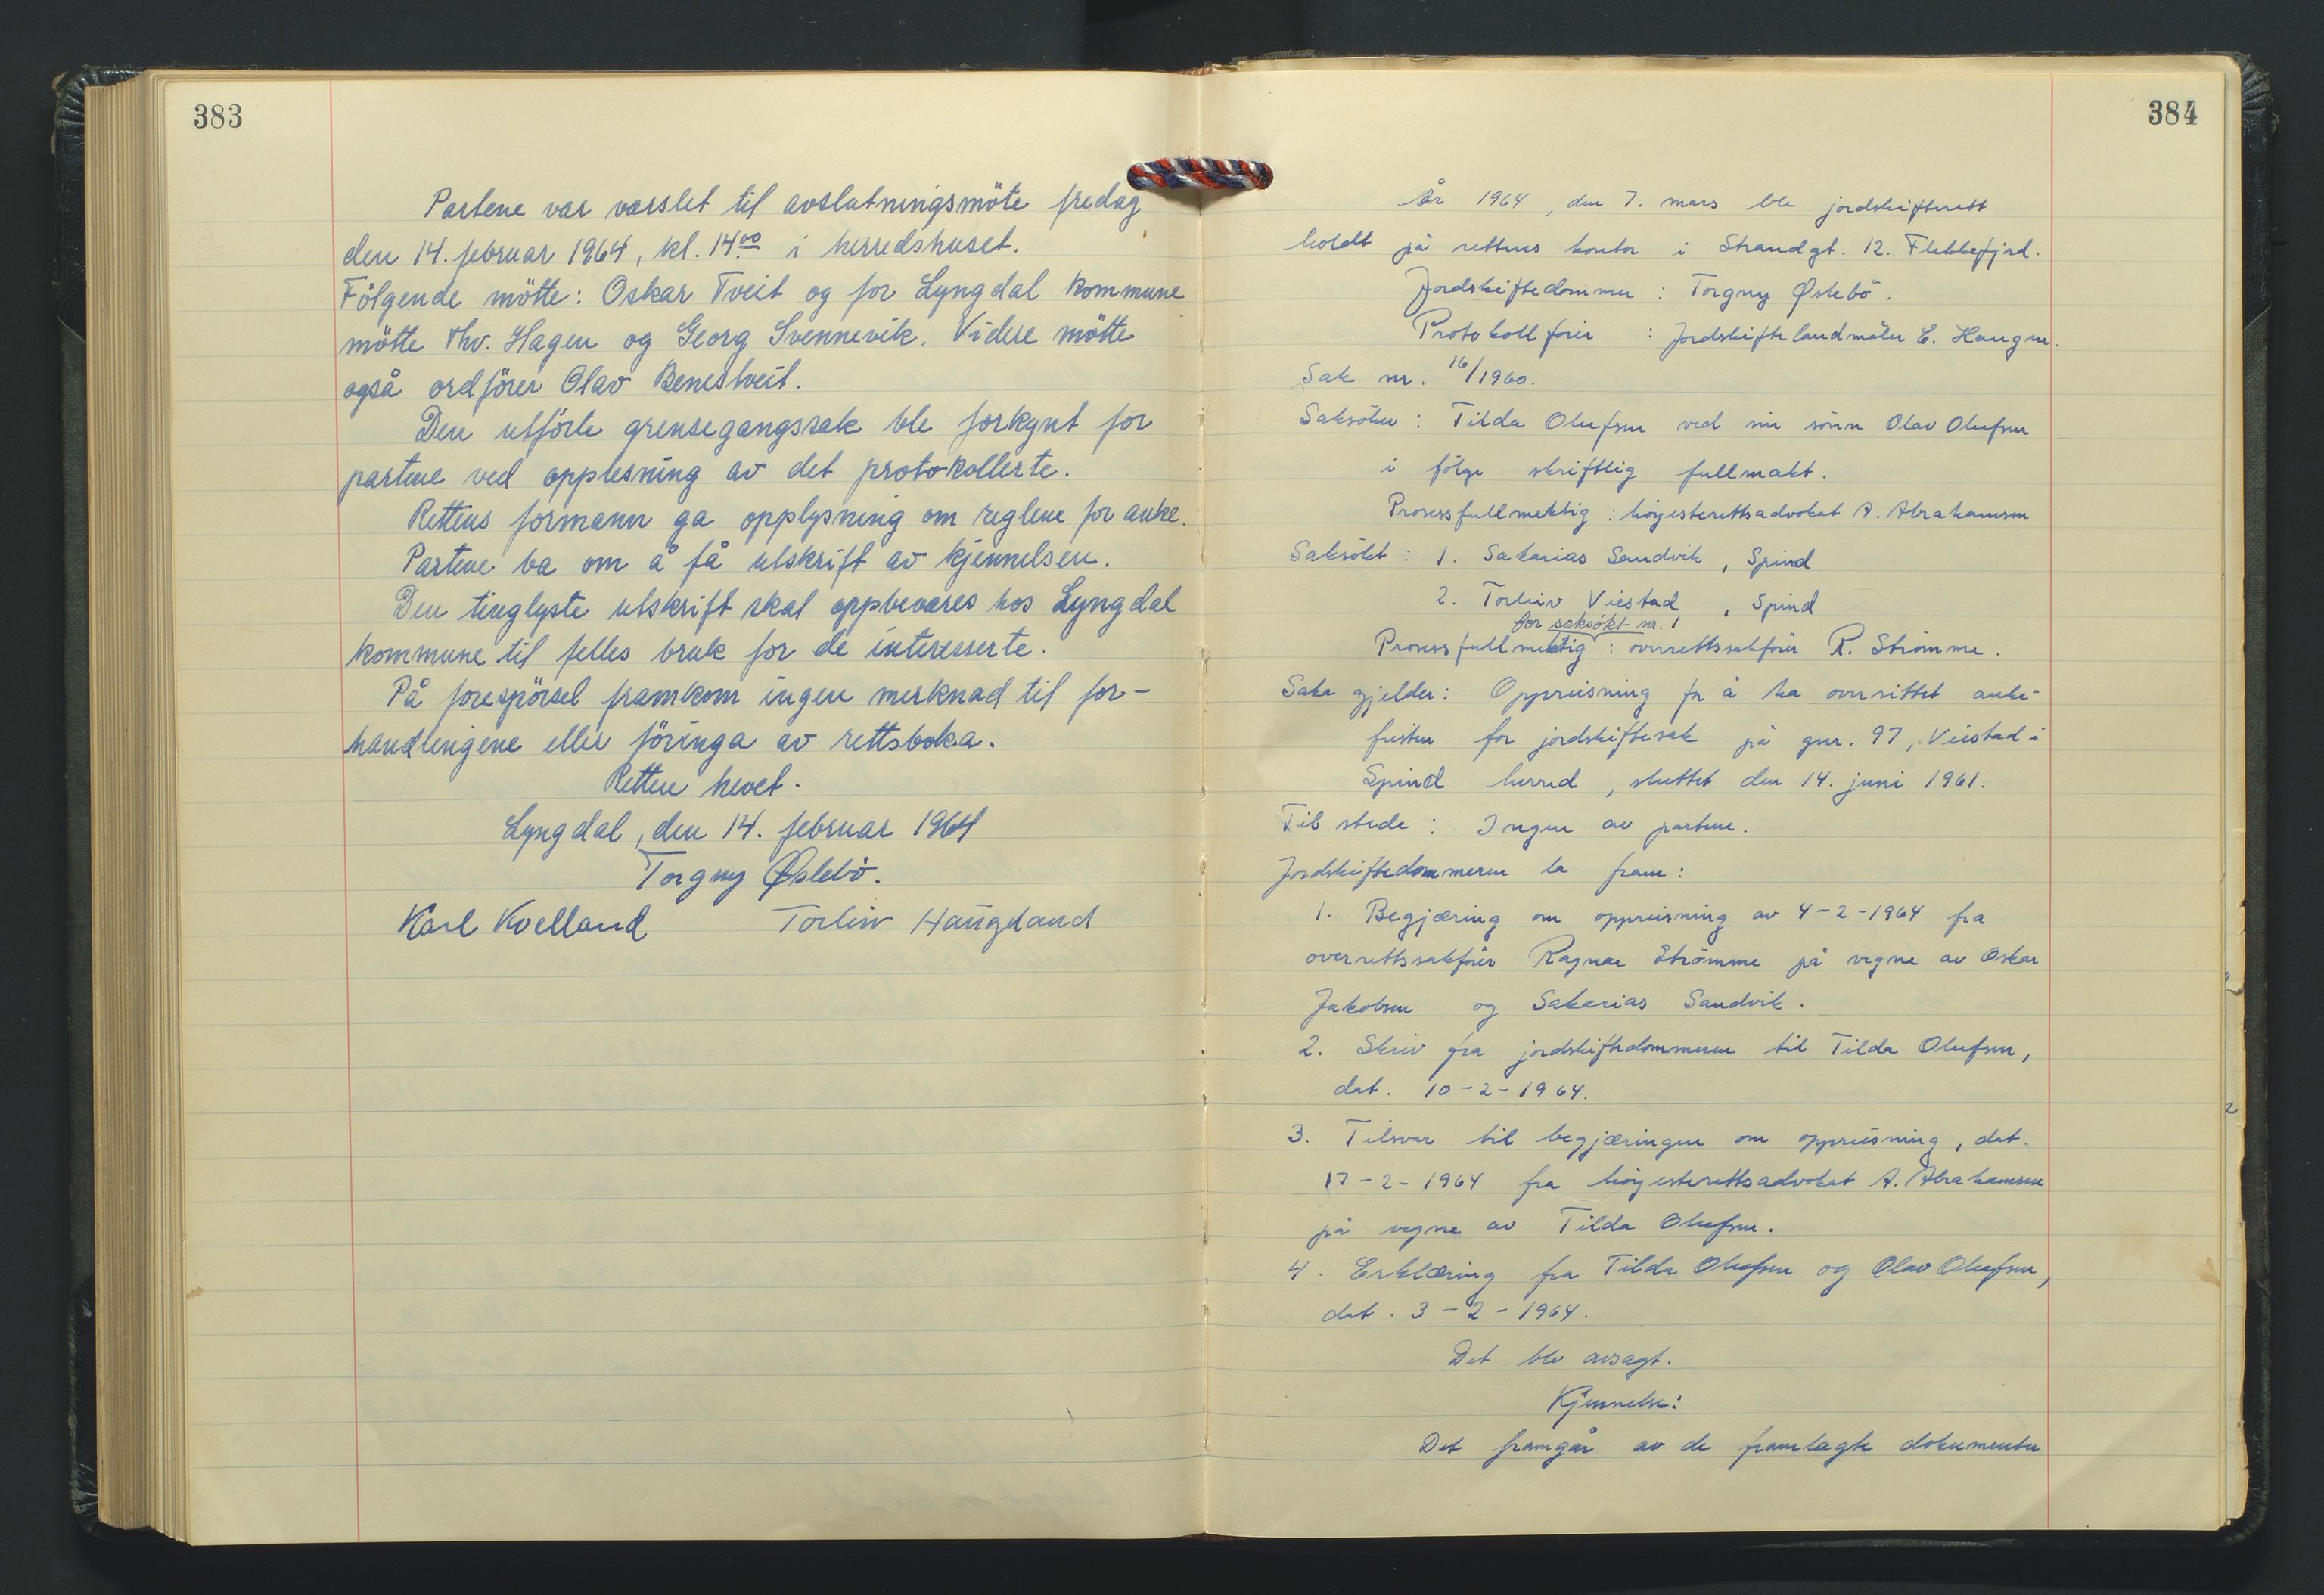 383
Partene var varslet til avslutningsmöte fredag
den 14. februar 1964, kl. 14.00 i herredshuset.
Fölgende mötte: Oskar Tveit og for Lyngdal kommune
mötte Thv. Hagen og Georg Svennevik. Videre mötte
også ordförer Olav Benestveit.
Den utförte grensegangssak ble forkynt for
partene ved opplesning av det protokollerte.
Rettens formann ga opplysning om reglene for anke.
Partene ba om å få utskrift av kjennelsen.
Den tinglyste utskrift skal oppbevares hos Lyngdal
kommune til felles bruk for de interesserte.
På forespörsel framkom ingen merknad til for-
handlingene eller föringa av rettsboka.
Retten hevet.
Lyngdal, den 14. februar 1964
Torgny Øslebö.
Karl Kvelland Torleiv Haugland
384
År 1964, den 7. mars ble jordskifterett
holdt på rettens kontor i Strandgt. 12. Flekkefjord.
Jordskiftedommer : Torgny Øslebö.
Protokollförer : Jordskiftelandmåler E. Haugen.
Sak nr. 16/1960.
Saksöker : Tilda Olufsen ved sin sönn Olav Olufsen
i fölge skriftlig fullmakt.
Prosessfullmektig : höyesterettsadvokat A. Abrahamsen
Saksökt : 1. Sakarias Sandvik, Spind
2. Torleiv Viestad, Spind
for saksökt nr. 1
Prosessfullmektig : overrettssakförer R. Strömme.
Saka gjelder: Oppreisning for å ha oversittet anke-
fristen for jordskiftesak på gnr. 97, Viestad i
Spind herred, sluttet den 14. juni 1961.
Til stede : Ingen av partene.
Jordskiftedommeren la fram :
1. Begjæring om oppreisning av 4-2-1964 fra
overrettssakförer Ragnar Strömme på vegne av Oskar
Jakobsen og Sakarias Sandvik.
2. Skriv fra jordskiftedommeren til Tilda Olufsen,
dat. 10-2-1964.
3. Tilsvar til begjæringen om oppreisning, dat.
17-2-1964 fra höyesterettsadvokat A. Abrahamsen
på vegne av Tilda Olufsen.
4. Erklæring fra Tilda Olufsen og Olav Olufsen,
dat. 3-2-1964.
Det ble avsagt.
Kjennelse:
Det framgår av de framlagte dokumenter